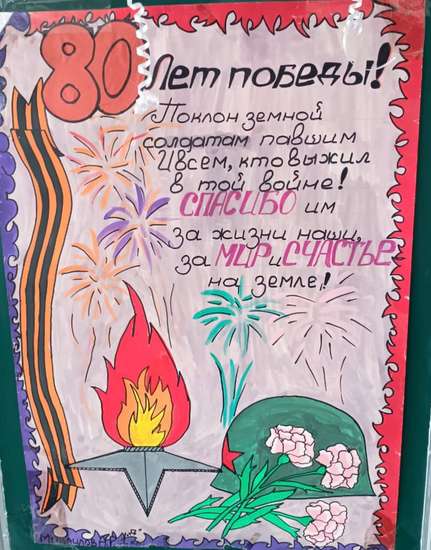 80 Лет победы!
Поклон земной
солдатам павшим
И всем, кто выжил
в той войне!
СПАСИБО им
за жизни наши,
за МИР и СЧАСТЬЕ
на земле,!